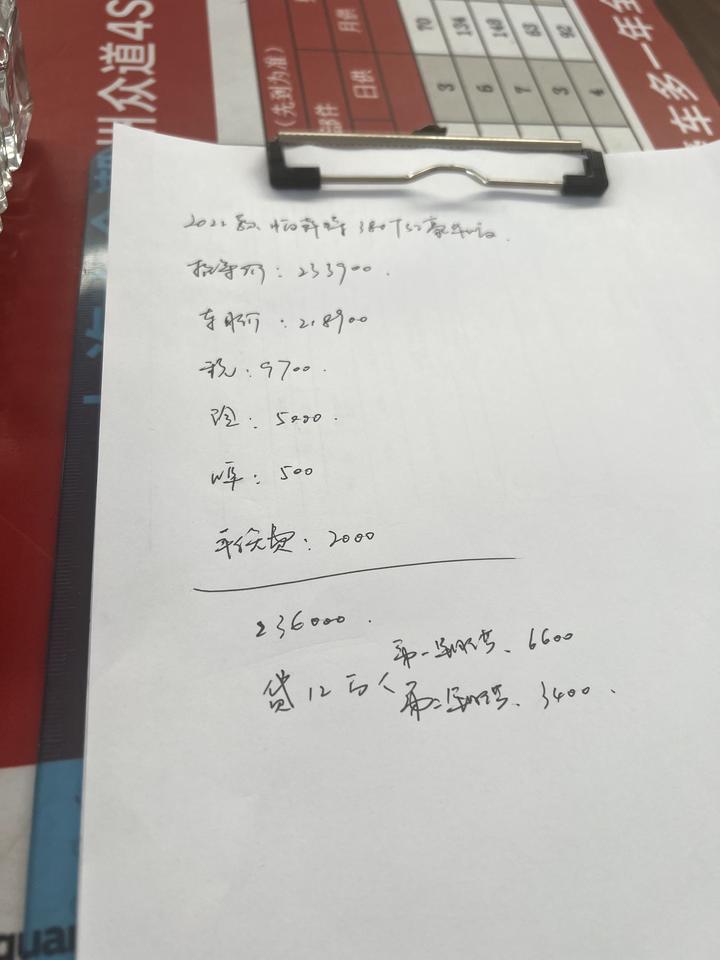 州众道4S
(先到为准)
部件
日供
月供
70
134
148
63
92
3
6
7
3
4
车多一年全
2022款 帕萨特 380TSI豪华版.
指导价: 233900.
车价: 218900
税: 9700.
险: 5000.
牌: 500
费: 2000
236000.
贷12万
第一年月供、6600
第二年月供、3400.